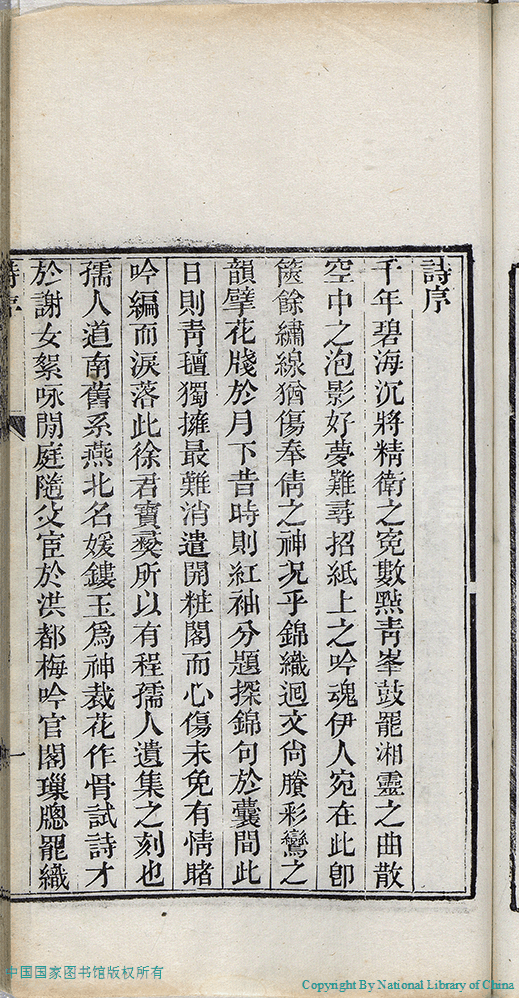 詩序
千年碧海沉將精衛之寃數點靑峯鼓罷湘靈之曲散
空中之泡影好夢難尋招紙上之吟魂伊人宛在此卽
篋餘繡線猶傷奉倩之神况乎錦織迴文尙賸彩鸞之
韻擘花牋於月下昔時則紅袖分題探錦句於囊間此
日則靑氊獨擁最難消遣開粧閣而心傷未免有情睹
吟編而淚落此徐君寶燮所以有程孺人遺集之刻也
孺人道南舊系燕北名媛鏤玉爲神裁花作骨試詩才
於謝女絮咏閒庭隨父宦於洪都梅吟官閣璅牕罷織
詩序
一
中国国家图书馆版权所有
Copyright By National Library of China